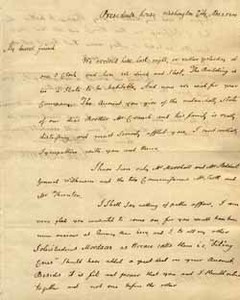 Presidents house, Washington City, Nov 2 1800
My dearest friend
We arrived here last night, or rather yesterday at
one o Clock and here we dined and Slept. The Building is
in a State to be habitable. And now we wish for your
Company. The Account you give of the melancholly State
of our dear Brother Mr Cranch and his family is really
distressing and must Severely afflict you. I most cordially
Sympathize with you and them.
I have Seen only Mr Marshall and Mr Stoddert
General Wilkinson and the two Commissioners Mr Scott and
Mr Thornton.
I Shall Say nothing of public affairs. I am
very glad you consented to come on for you would have been
more anxious at Quincy than here, and I, to all my other
Solicitudines Mordaces as Horace calls them i.e. "biting
Cares" Should have added a great deal on your Account.
Besides it is fit and proper that you and I Should retire
together and not one before the other